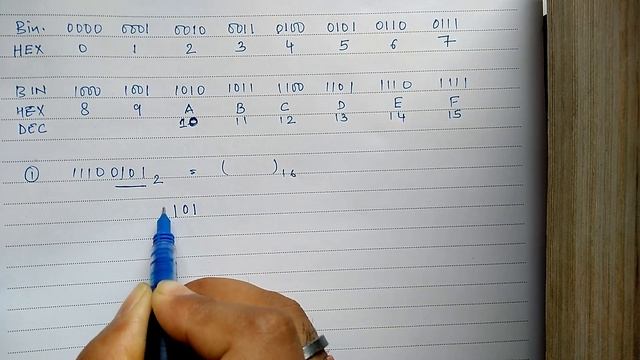 Bin. 0000 0001 0010 0011 0100 0101 0110 0111
HEX 0 1 2 3 4 5 6 7
BIN 1000 1001 1010 1011 1100 1101 1110 1111
HEX 8 9 A B C D E F
DEC 10 11 12 13 14 15
① 11100101₂ = ( )₁₆
101